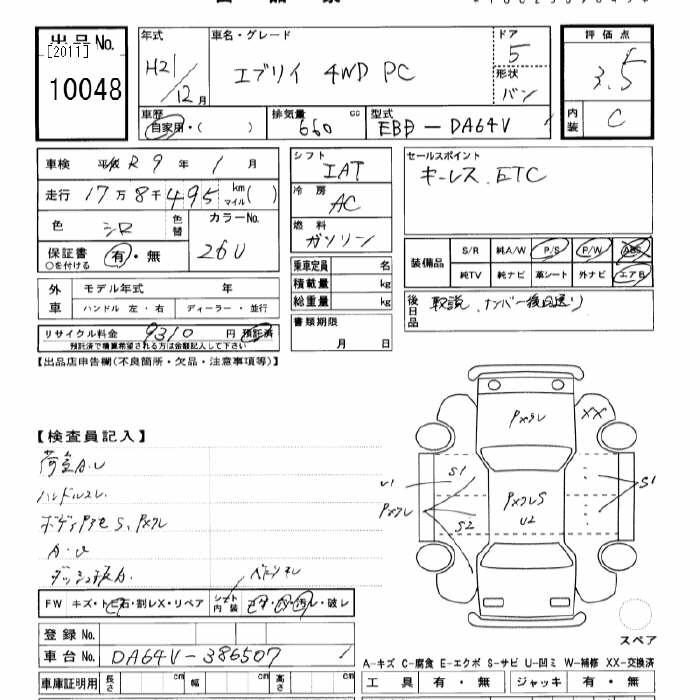 出品No.
[2011]
10048
年式
H21
12月
車名・グレード
エブリイ 4WD PC
ドア
5
形状
バン
評価点
3.5
内装
C
車歴
自家用・( )
排気量 cc
660
型式
EBD-DA64V
車検 平成 R 9 年 1 月
走行 17万8千495 km マイル( )
色
シロ
色替
カラーNo.
26U
保証書
○を付ける
有・無
外車
モデル年式 年
ハンドル 左・右
ディーラー・並行
リサイクル料金 9310 円 預託済
預託済で積算希望される方は金額記入して下さい
シフト
IAT
冷房
AC
燃料
ガソリン
乗車定員 名
積載量 kg
総重量 kg
書類期限
月 日
セールスポイント
キーレス、ETC
装備品
S/R 純A/W P/S P/W ABS
純TV 純ナビ 革シート 外ナビ エアB
後日品
取説、ナンバー後日送り
【出品店申告欄(不良箇所・欠品・注意事項等)】
【検査員記入】
荷室A.U
ハンドルスレ
S、Pスレ
A・U
FW キズ・トビ石・割レX・リペア
シート内装
コゲ・穴・汚レ・破レ
登録No.
車台No. DA64V-386507
車庫証明用 長さ cm 幅 cm 高さ cm
XX
S1
U1
S1
S2
U2
スペア
A-キズ C-腐食 E-エクボ S-サビ U-凹ミ W-補修 XX-交換済
工具 有・無 ジャッキ 有・無